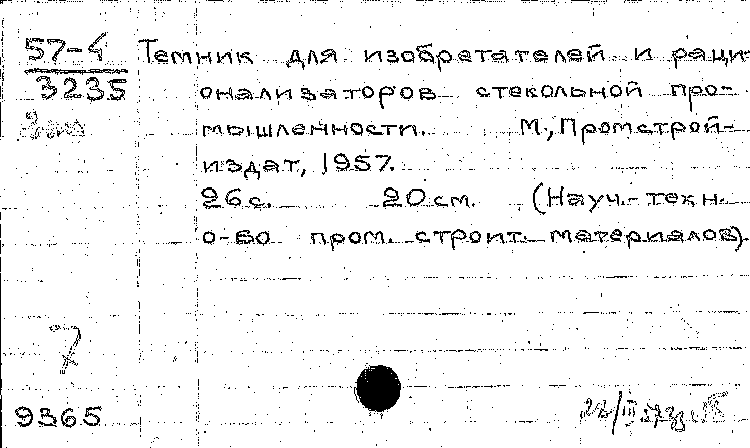 57-4 Темник для изобретателей и раци-
3235 онализаторов стекольной про-
мышленности. М., Промстрой-
издат, 1957.
26 с. 20 см. (Науч.-техн.
о-во пром. строит. материалов).
7
9365